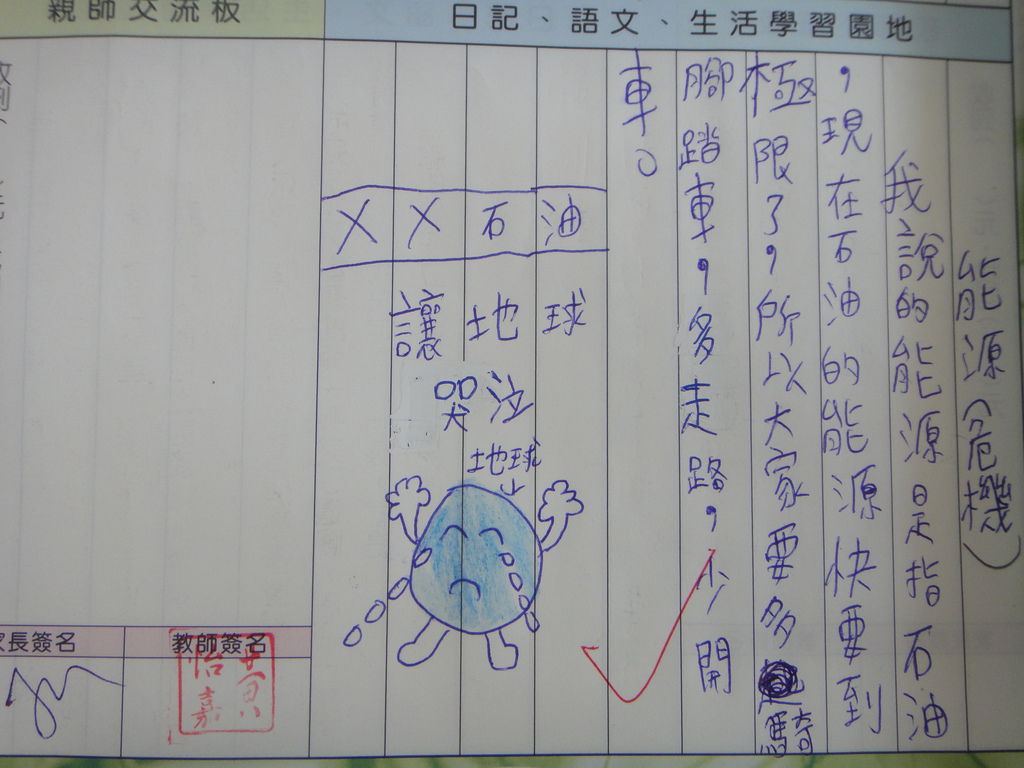 親師交流板
日記、語文、生活學習園地
能源(危機)
我說的能源是指石油
，現在石油的能源快要到
極限了，所以大家要多騎
腳踏車，多走路，少開
車。
油石XX
球地讓
泣哭
地球
家長簽名
教師簽名
黃怡嘉